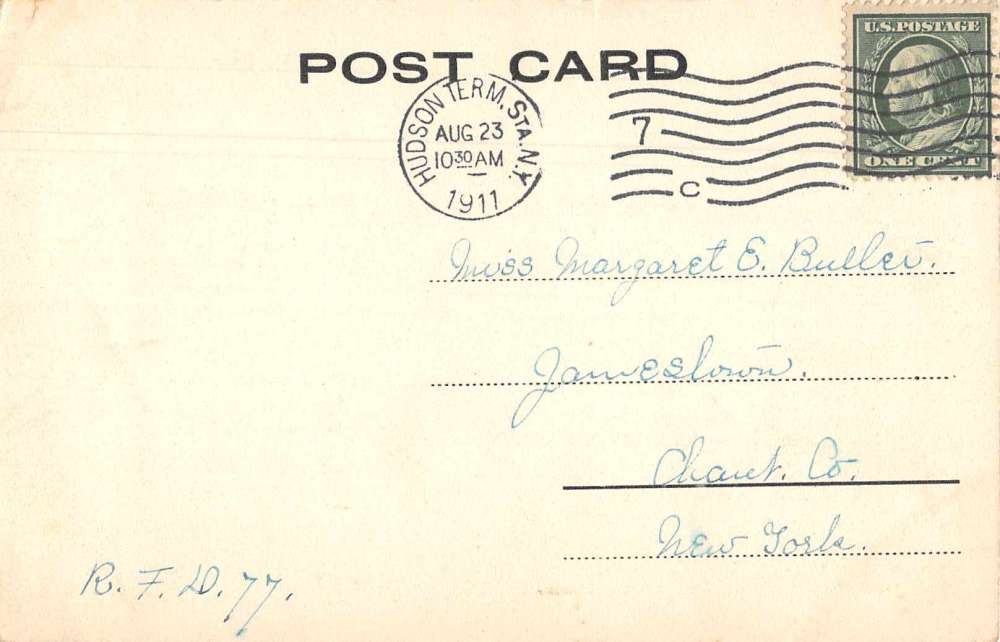 POST CARD
HUDSON TERM. STA. N.Y.
AUG 23
10 30 AM
1911
7
C
U.S. POSTAGE
ONE CENT
Miss Margaret E. Butler.
Jamestown.
Chaut. Co.
New York.
R. F. D. 77.